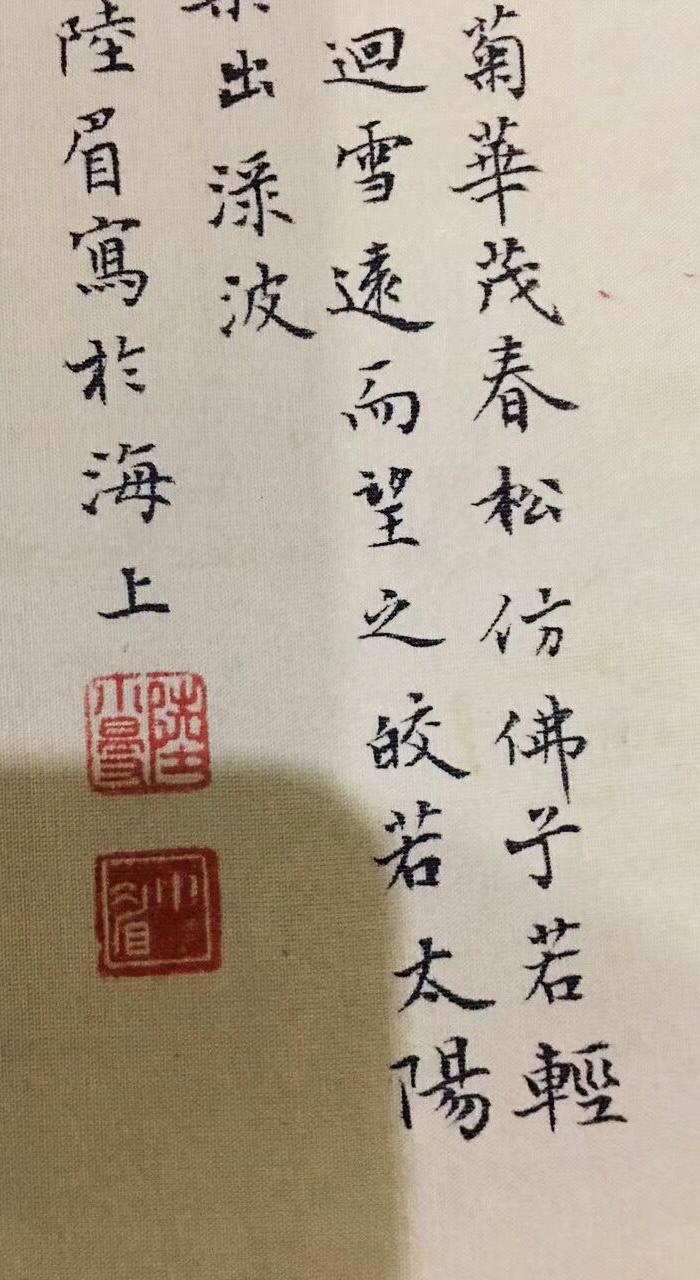 菊華茂春松仿佛兮若輕
迴雪遠而望之皎若太陽
出淥波
陸眉寫於海上
小眉